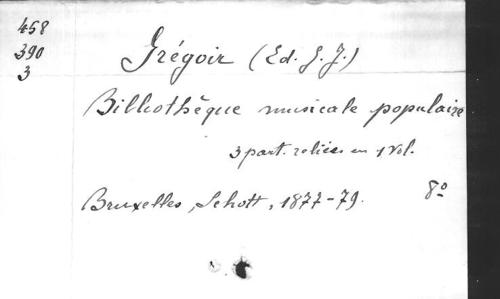 458
390
3
Grégoir (Ed. G. J.)
Bibliothèque musicale populaire
3 part. reliées en 1 vol.
Bruxelles, Schott, 1877-79. 8º